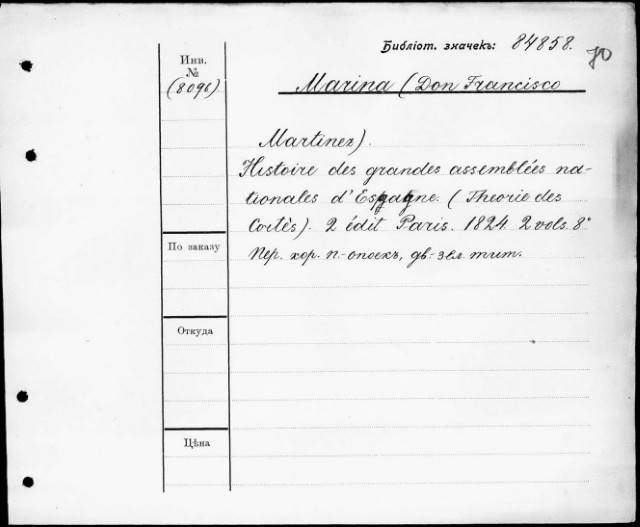 Библіот. значекъ: 84858.
70
Инв.
№
(8096)
Marina (Don Francisco
Martinez).
Histoire des grandes assemblées na-
tionales d'Espagne. (Theorie des
Cortès). 2 édit Paris. 1824. 2 vols. 8°
Пер. кор. п.-опоекъ, дв.-зел. тит.
По заказу
Откуда
Цѣна